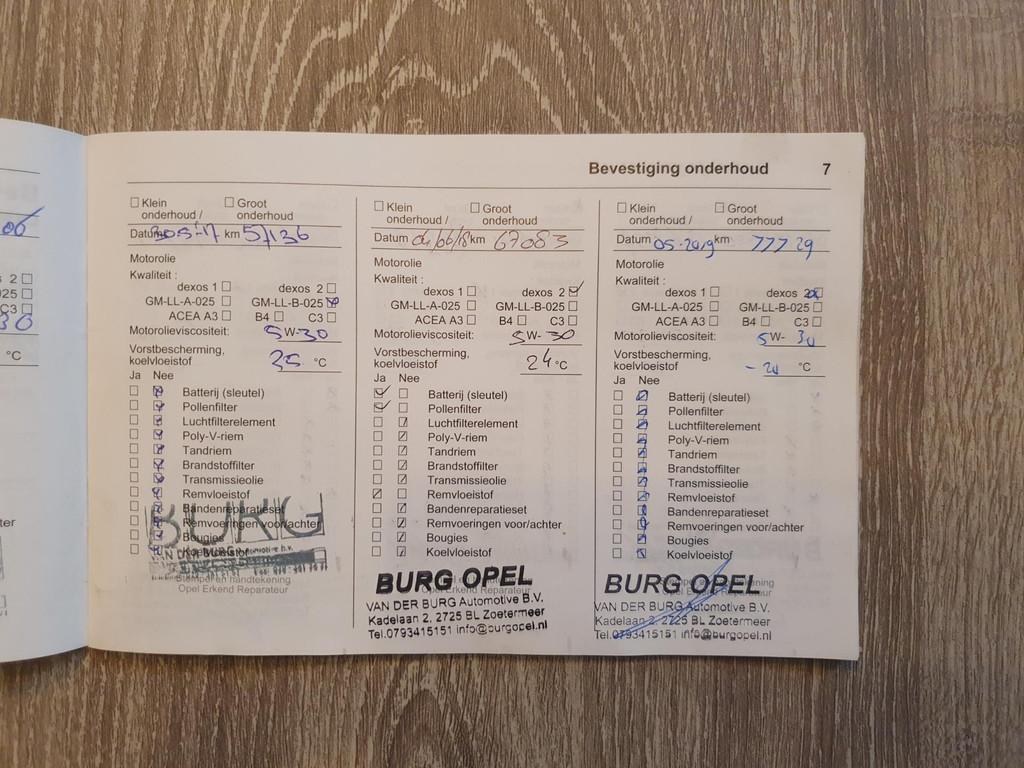 Bevestiging onderhoud 7
Klein onderhoud / Groot onderhoud
Datum 30.5-17 km 57136
Motorolie
Kwaliteit :
dexos 1 dexos 2
GM-LL-A-025 GM-LL-B-025
ACEA A3 B4 C3
Motorolieviscositeit: 5W-30
Vorstbescherming,
koelvloeistof 35 °C
Ja Nee
Batterij (sleutel)
Pollenfilter
Luchtfilterelement
Poly-V-riem
Tandriem
Brandstoffilter
Transmissieolie
Remvloeistof
Bandenreparatieset
Remvoeringen voor/achter
Bougies
Koelvloeistof
BURG
VAN DER BURG Automotive b.v.
Stempel en handtekening
Opel Erkend Reparateur
Klein onderhoud / Groot onderhoud
Datum 04/06/18 km 67083
Motorolie
Kwaliteit :
dexos 1 dexos 2
GM-LL-A-025 GM-LL-B-025
ACEA A3 B4 C3
Motorolieviscositeit: 5W-30
Vorstbescherming,
koelvloeistof 24 °C
Ja Nee
Batterij (sleutel)
Pollenfilter
Luchtfilterelement
Poly-V-riem
Tandriem
Brandstoffilter
Transmissieolie
Remvloeistof
Bandenreparatieset
Remvoeringen voor/achter
Bougies
Koelvloeistof
BURG OPEL
VAN DER BURG Automotive B.V.
Kadelaan 2, 2725 BL Zoetermeer
Tel.0793415151 info@burgopel.nl
Klein onderhoud / Groot onderhoud
Datum 05-2019 km 77729
Motorolie
Kwaliteit :
dexos 1 dexos 2
GM-LL-A-025 GM-LL-B-025
ACEA A3 B4 C3
Motorolieviscositeit: 5W-30
Vorstbescherming,
koelvloeistof -24 °C
Ja Nee
Batterij (sleutel)
Pollenfilter
Luchtfilterelement
Poly-V-riem
Tandriem
Brandstoffilter
Transmissieolie
Remvloeistof
Bandenreparatieset
Remvoeringen voor/achter
Bougies
Koelvloeistof
BURG OPEL
VAN DER BURG Automotive B.V.
Kadelaan 2, 2725 BL Zoetermeer
Tel.0793415151 info@burgopel.nl